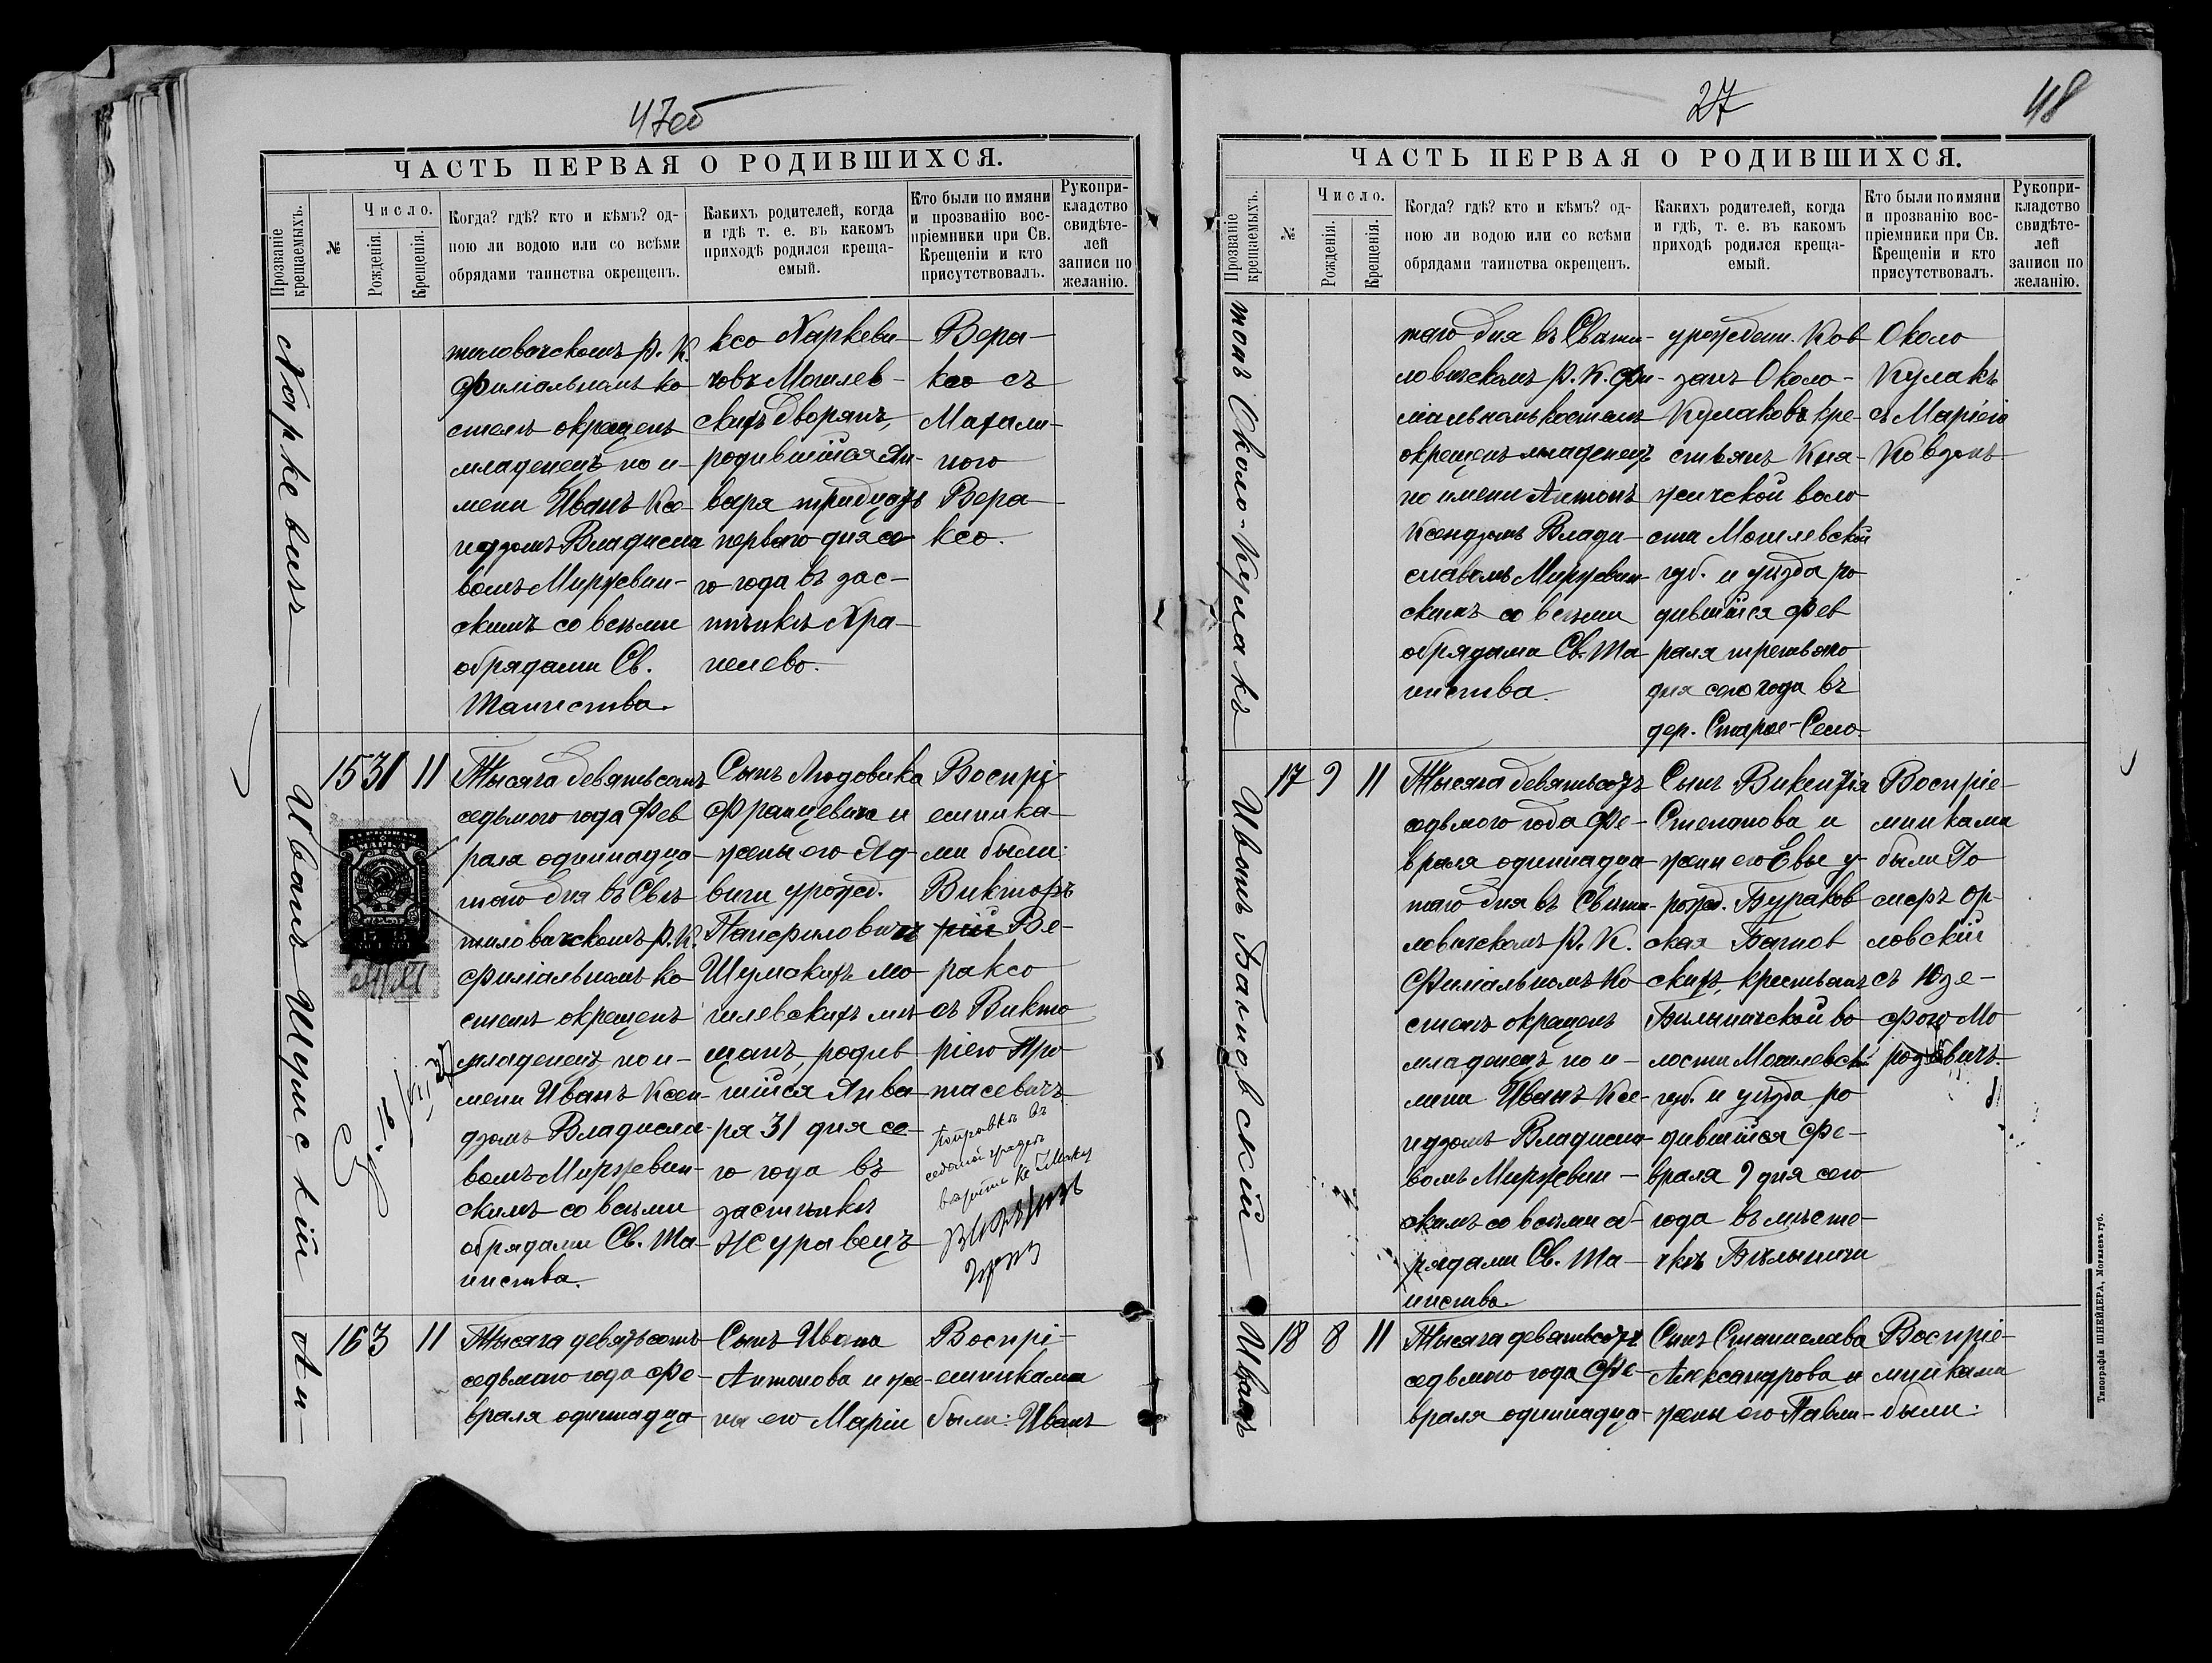 47об
ЧАСТЬ ПЕРВАЯ О РОДИВШИХСЯ.
Прозваніе крещаемыхъ.
№
Число.
Рожденія.
Крещенія.
Когда? гдѣ? кто и кѣмъ? од-
ною ли водою или со всѣми
обрядами таинства окрещенъ.
Какихъ родителей, когда
и гдѣ т. е. въ какомъ
приходѣ родился креща-
емый.
Кто были по имяни
и прозванію вос-
пріемники при Св.
Крещеніи и кто
присутствовалъ.
Рукопри-
кладство
свидѣте-
лей
записи по
желанію.
Харкевичъ
тиловичскомъ р. к.
филіальномъ ко
стелѣ окрещенъ
младенецъ по и-
мени Иванъ Ксе-
ндзомъ Владисла
вомъ Миржевин-
скимъ со всѣми
обрядами Св.
Таинства.
ксо Харкеви-
човъ Могилев-
скихъ дворянъ,
родившійся Ян-
варя тридцать
перваго дня се-
го года въ зас-
тѣнкѣ Хра-
пелево.
Вера-
ксо съ
Магали-
ною
Вера-
ксо.
Иванъ Шумскій
15 31 11
МАРКА
Тысяча девятьсотъ
седьмого года Фев
раля одиннадца-
таго дня въ Свѣ
тиловичскомъ р. к.
филіальномъ ко
стелѣ окрещенъ
младенецъ по и-
мени Иванъ Ксен-
дзомъ Владисла-
вомъ Миржевин-
скимъ со всѣми
обрядами Св. Та-
инства.
Сынъ Людовика
Францевича и
жены его Яд-
виги урожд.
Панфиловичъ
Шумскихъ мо
гилевскихъ мѣ
щанъ, родив
шійся Янва
ря 31 дня се-
го года въ
застѣнкѣ
Журавецъ
Воспрі
емника-
ми были:
Викторъ
рій Ве-
раксо
съ Викто
ріею Про
тасевичъ
Ан-
16 3 11
Тысяча девятьсотъ
седьмого года Фе-
враля одиннадца
Сынъ Ивана
Антонова и же-
ны его Маріи
Воспрі-
емниками
были: Иванъ
27
48
ЧАСТЬ ПЕРВАЯ О РОДИВШИХСЯ.
Прозваніе крещаемыхъ.
№
Число.
Рожденія.
Крещенія.
Когда? гдѣ? кто и кѣмъ? од-
ною ли водою или со всѣми
обрядами таинства окрещенъ.
Какихъ родителей, когда
и гдѣ, т. е. въ какомъ
приходѣ родился креща-
емый.
Кто были по имяни
и прозванію вос-
пріемники при Св.
Крещеніи и кто
присутствовалъ.
Рукопри-
кладство
свидѣте-
лей
записи по
желанію.
тонъ Около-Кулакъ
таго дня въ Свѣти-
ловичскомъ р. к. фи-
ліальномъ костелѣ
окрещенъ младенецъ
по имени Антонъ
Ксендзомъ Влади-
славомъ Миржевин-
скимъ со всѣми
обрядами Св. Та
инства.
урожденн. Ков
занъ Около-
Кулаковъ кре-
стьянъ Кня-
жичской воло
сти Могилевской
губ. и уѣзда ро
дившійся Фев
раля третьяго
дня сего года въ
дер. Старое-Село.
Около
Кулакъ
съ Маріею
Ковзонъ
Иванъ Багновскій
17 9 11
Тысяча девятьсотъ
седьмого года Фе-
враля одиннадца
таго дня въ Свѣти-
ловичскомъ р. к.
филіальномъ ко
стелѣ окрещенъ
младенецъ по и-
мени Иванъ Ксе-
ндзомъ Владисла-
вомъ Миржевин-
скимъ со всѣми об-
рядами Св. Та-
инства.
Сынъ Викентія
Степанова и
жены его Евы у-
рожд. Бураков
ская Багнов
скихъ, крестьянъ
Бѣлыничской во
лости Могилевск.
губ. и уѣзда ро
дившійся Фе-
враля 9 дня сего
года въ мѣсте-
чкѣ Бѣлыничи
Воспріе-
мниками
были Го
меръ Ор-
ловскій
съ Юзе-
фою Мо
розовичъ.
Иванъ
18 8 11
Тысяча девятьсотъ
седьмого года Фе-
враля одиннадца-
Сынъ Станислава
Александрова и
жены его Павли-
Воспріе-
мниками
были:
Типографія ШНЕЙДЕРА, Могилевъ губ.